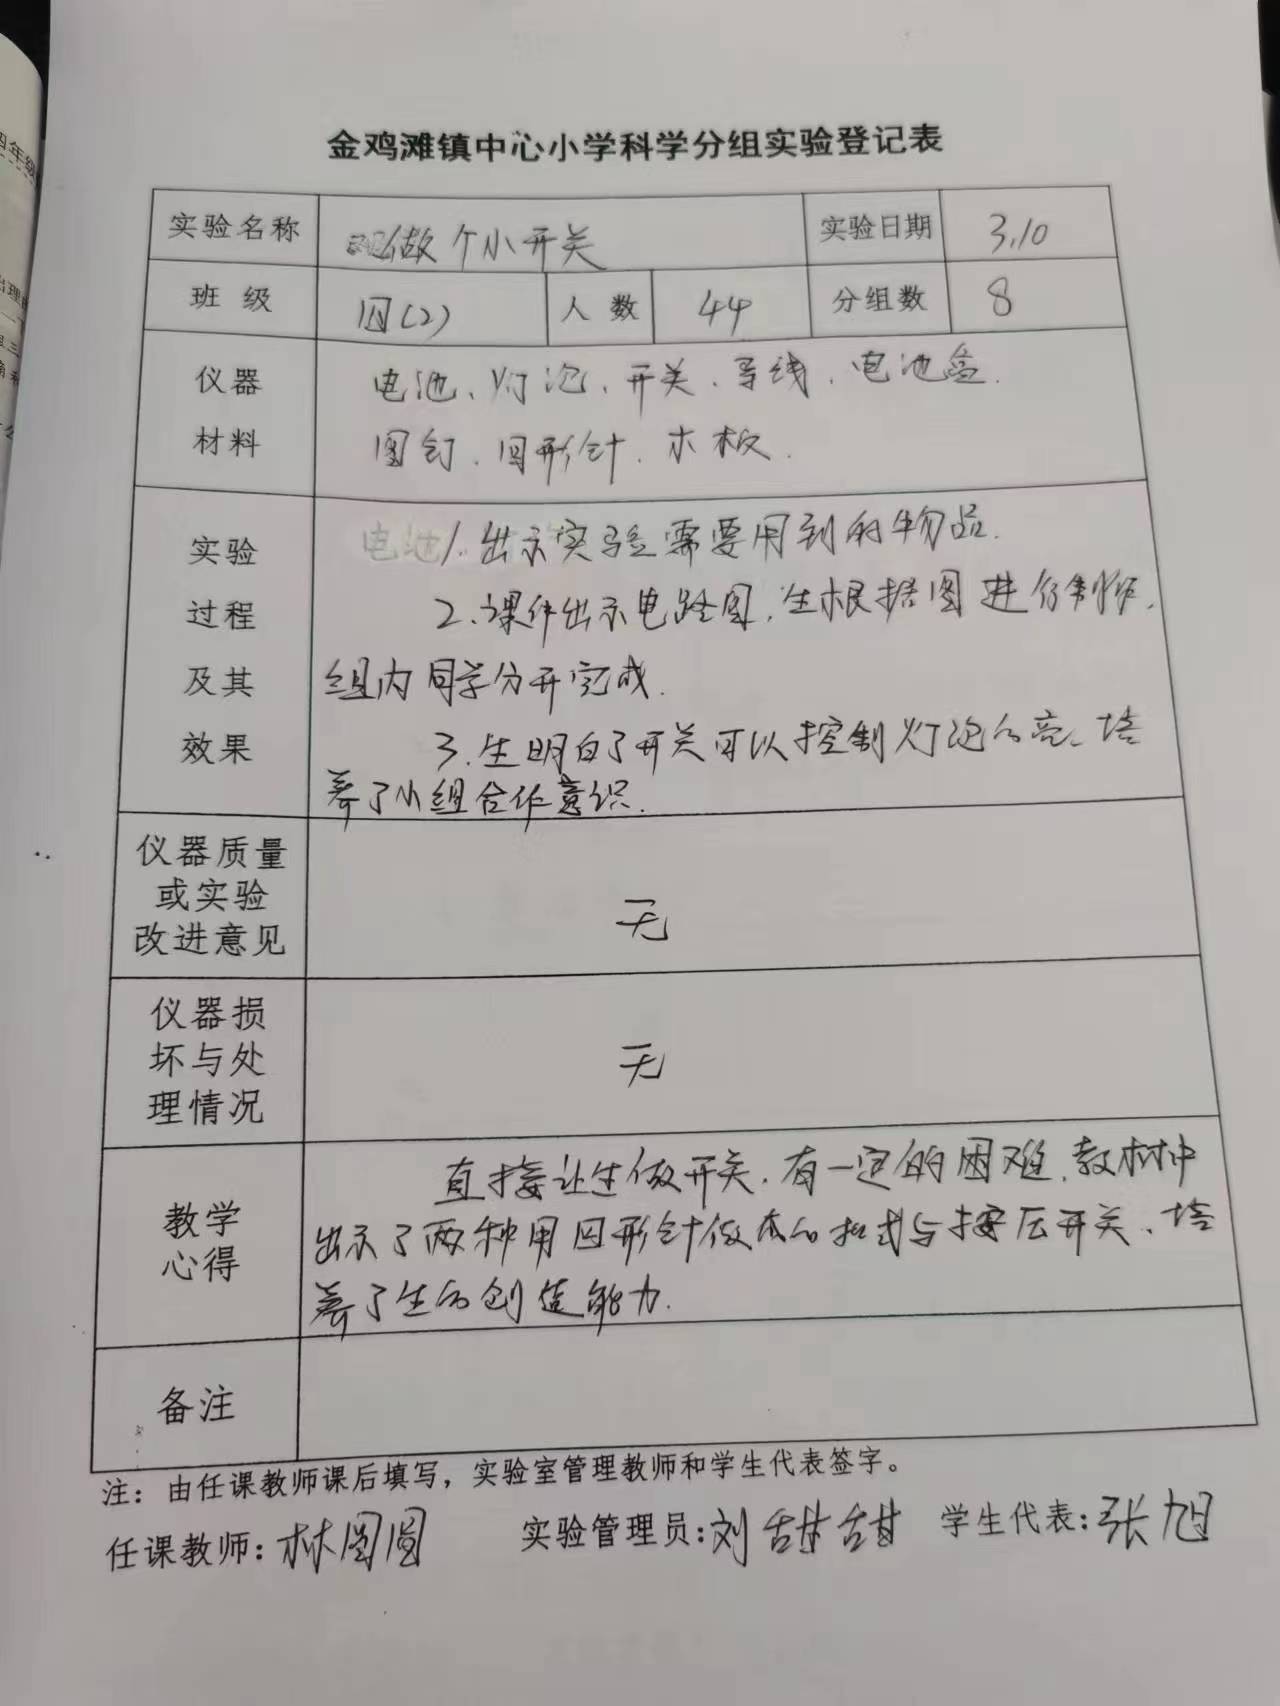 金鸡滩镇中心小学科学分组实验登记表
实验名称 做个小开关 实验日期 3.10
班级 四(2) 人数 44 分组数 8
仪器材料
电池、灯泡、开关、导线、电池盒.
图钉、回形针、木板.
实验过程及其效果
电池1.出示实验需要用到的物品.
2.课件出示电路图,生根据图进行制作.
组内同学分开完成.
3.生明白了开关可以控制灯泡的亮、培
养了小组合作意识.
仪器质量或实验改进意见
无
仪器损坏与处理情况
无
教学心得
直接让生做开关,有一定的困难,教材中
出示了两种用回形针做的拉式与按压开关、培
养了生的创造能力.
备注
注：由任课教师课后填写，实验室管理教师和学生代表签字。
任课教师:林圆圆 实验管理员:刘甜甜 学生代表:张旭
四年级